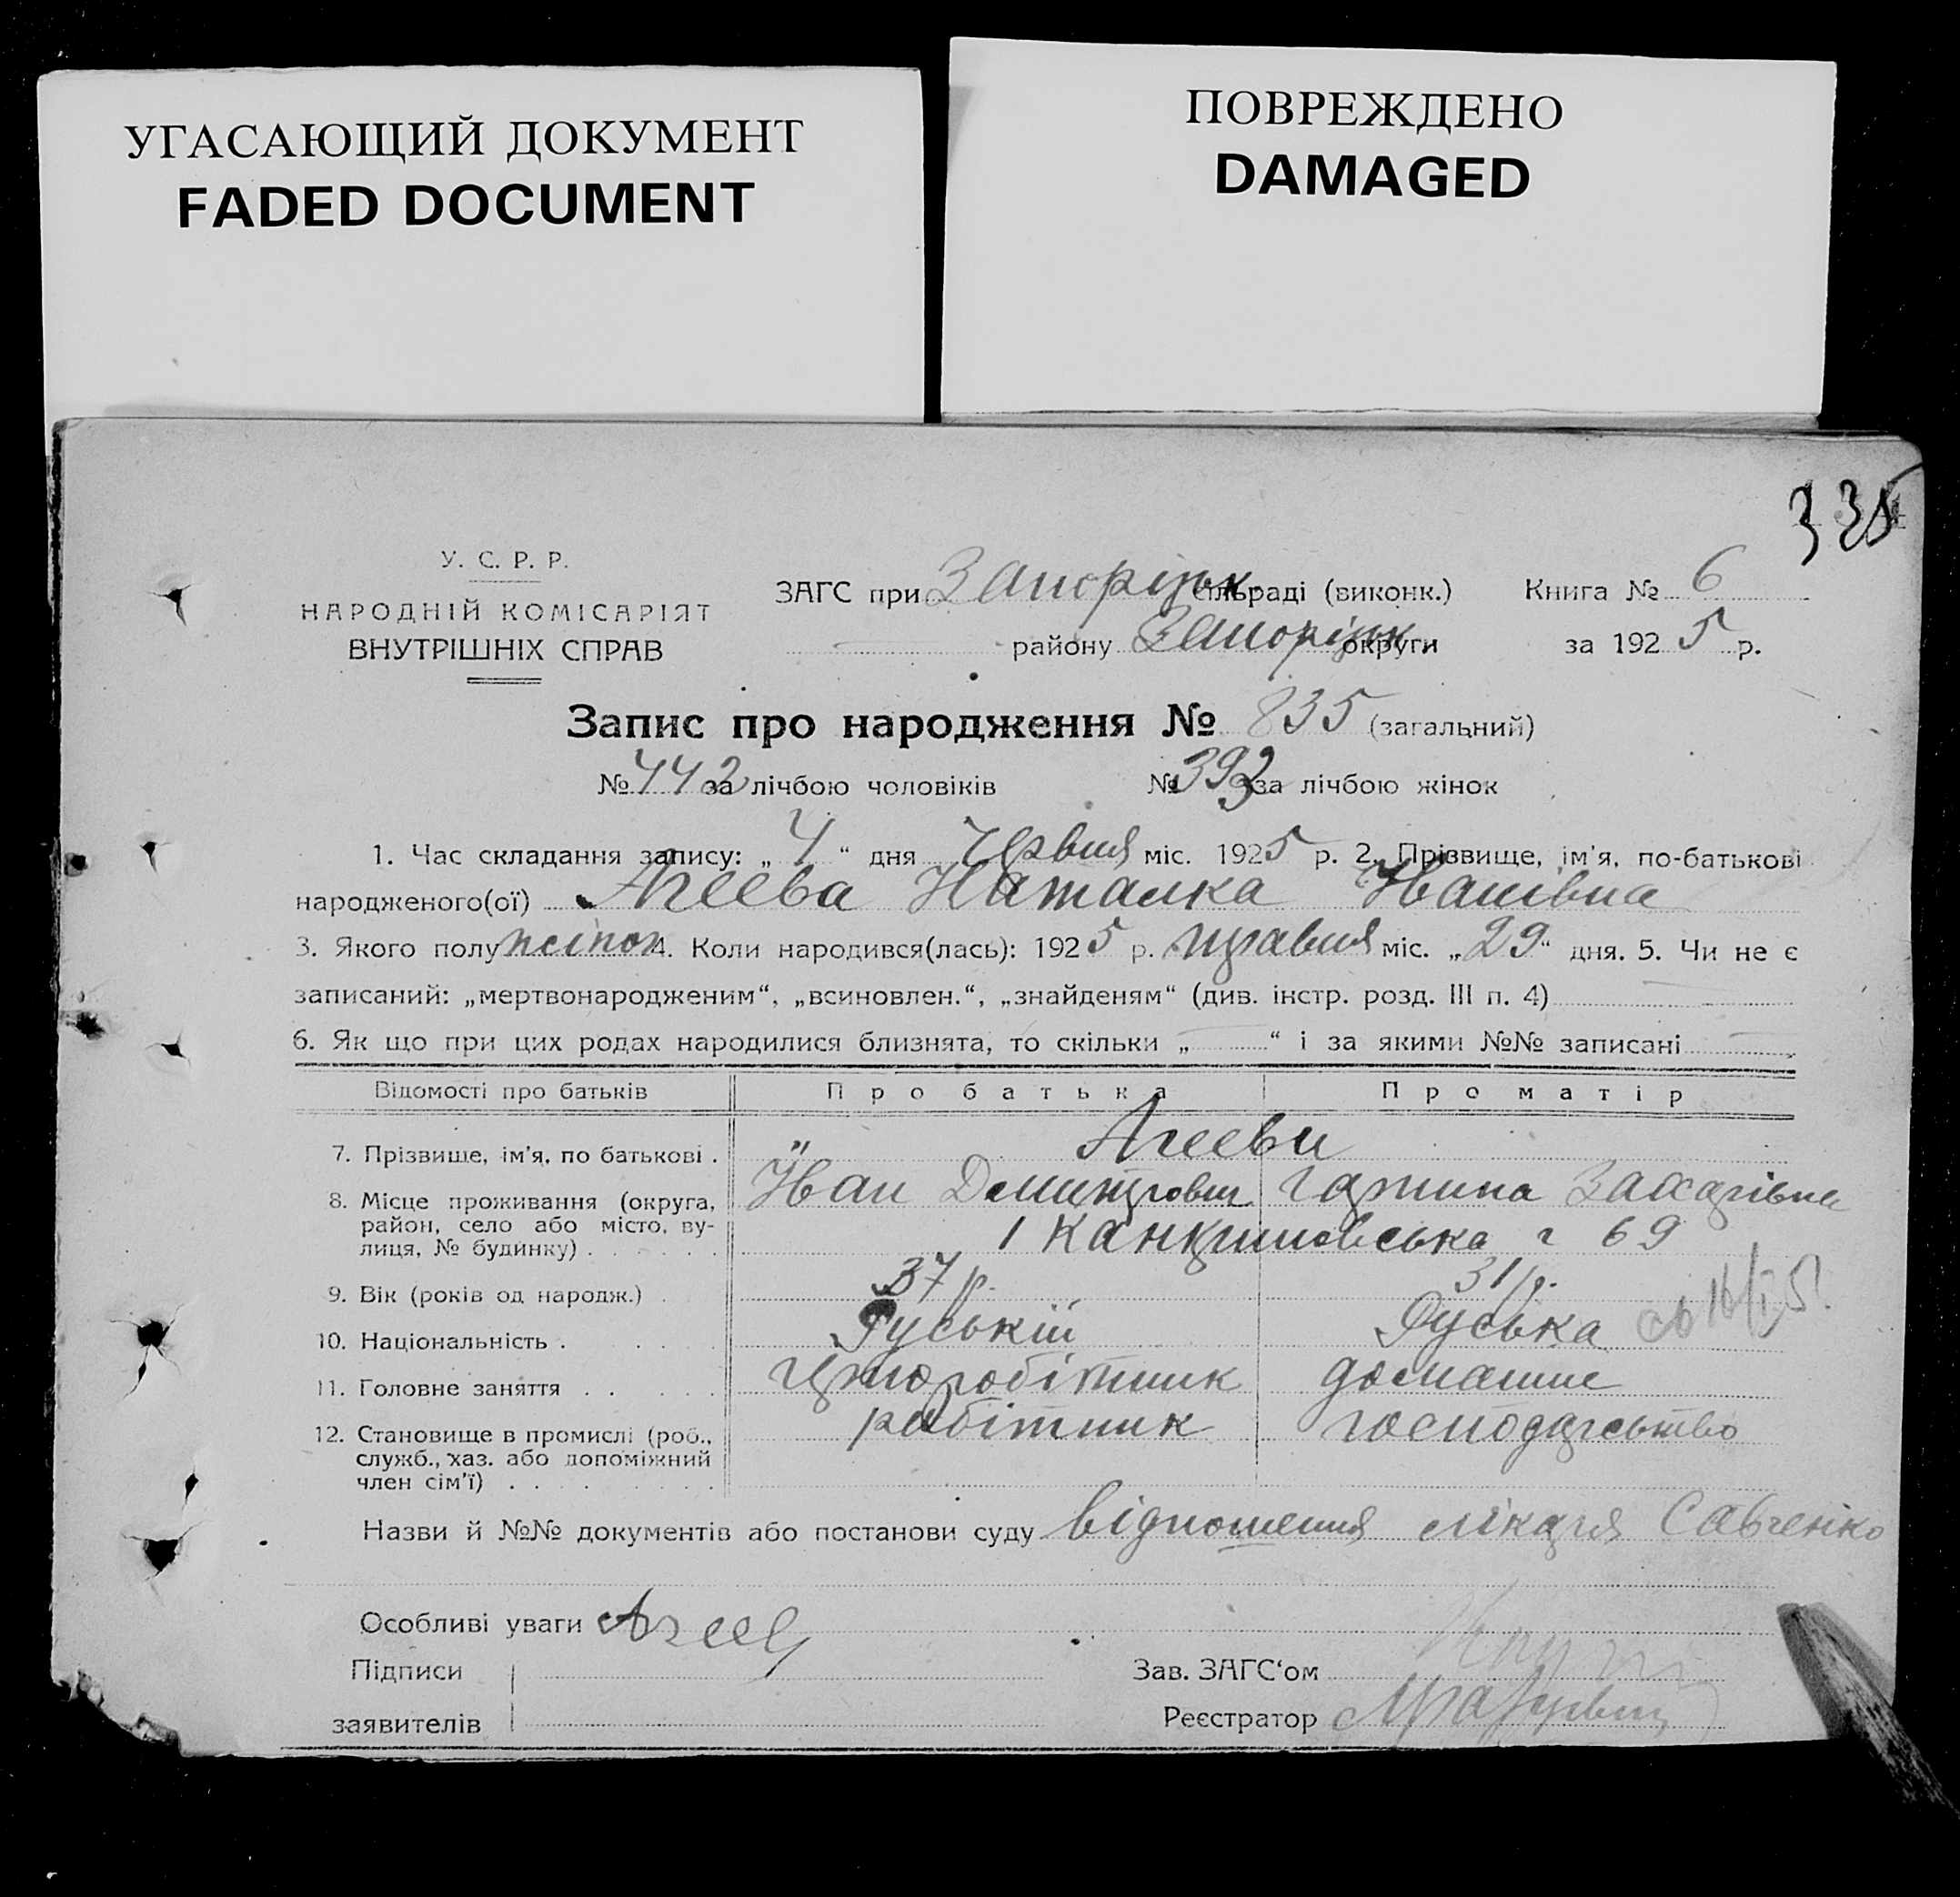 УГАСАЮЩИЙ ДОКУМЕНТ
FADED DOCUMENT
ПОВРЕЖДЕНО
DAMAGED
335
У. С. Р. Р.
НАРОДНІЙ КОМІСАРІЯТ
ВНУТРІШНІХ СПРАВ
ЗАГС при Запоріжж. сільраді (виконк.) Книга № 6
району Запоріжж. округи за 1925 р.
Запис про народження № 835 (загальний)
№ 442 за лічбою чоловіків № 393 за лічбою жінок
1. Час складання запису: „ 4 “ дня Червня міс. 1925 р. 2. Прізвище, ім'я, по-батькові
народженого(ої) Агеева Наталка Иванівна
3. Якого полу жіноч 4. Коли народився(лась): 1925 р. травня міс. „29“ дня. 5. Чи не є
записаний: „мертвонародженим“, „всиновлен.“, „знайденям“ (див. інстр. розд. III п. 4)
6. Як що при цих родах народилися близнята, то скільки „ “ і за якими №№ записані
Відомості про батьків Про батька Про матір
7. Прізвище, ім'я, по батькові . Агееви
8. Місце проживання (округа, район, село або місто, вулиця, № будинку) . Иван Захарівна
69
9. Вік (років од народж.) . 37 р. 31 р.
10. Національність . Руській Руська
11. Головне заняття . . чорноробітник домашне
12. Становище в промислі (роб., служб., хаз. або допоміжний член сім'ї) . робітник господарство
Назви й №№ документів або постанови суду відношення лікаря Савченко
Особливі уваги Агеев
Підписи
заявителів
Зав. ЗАГС'ом
Реєстратор